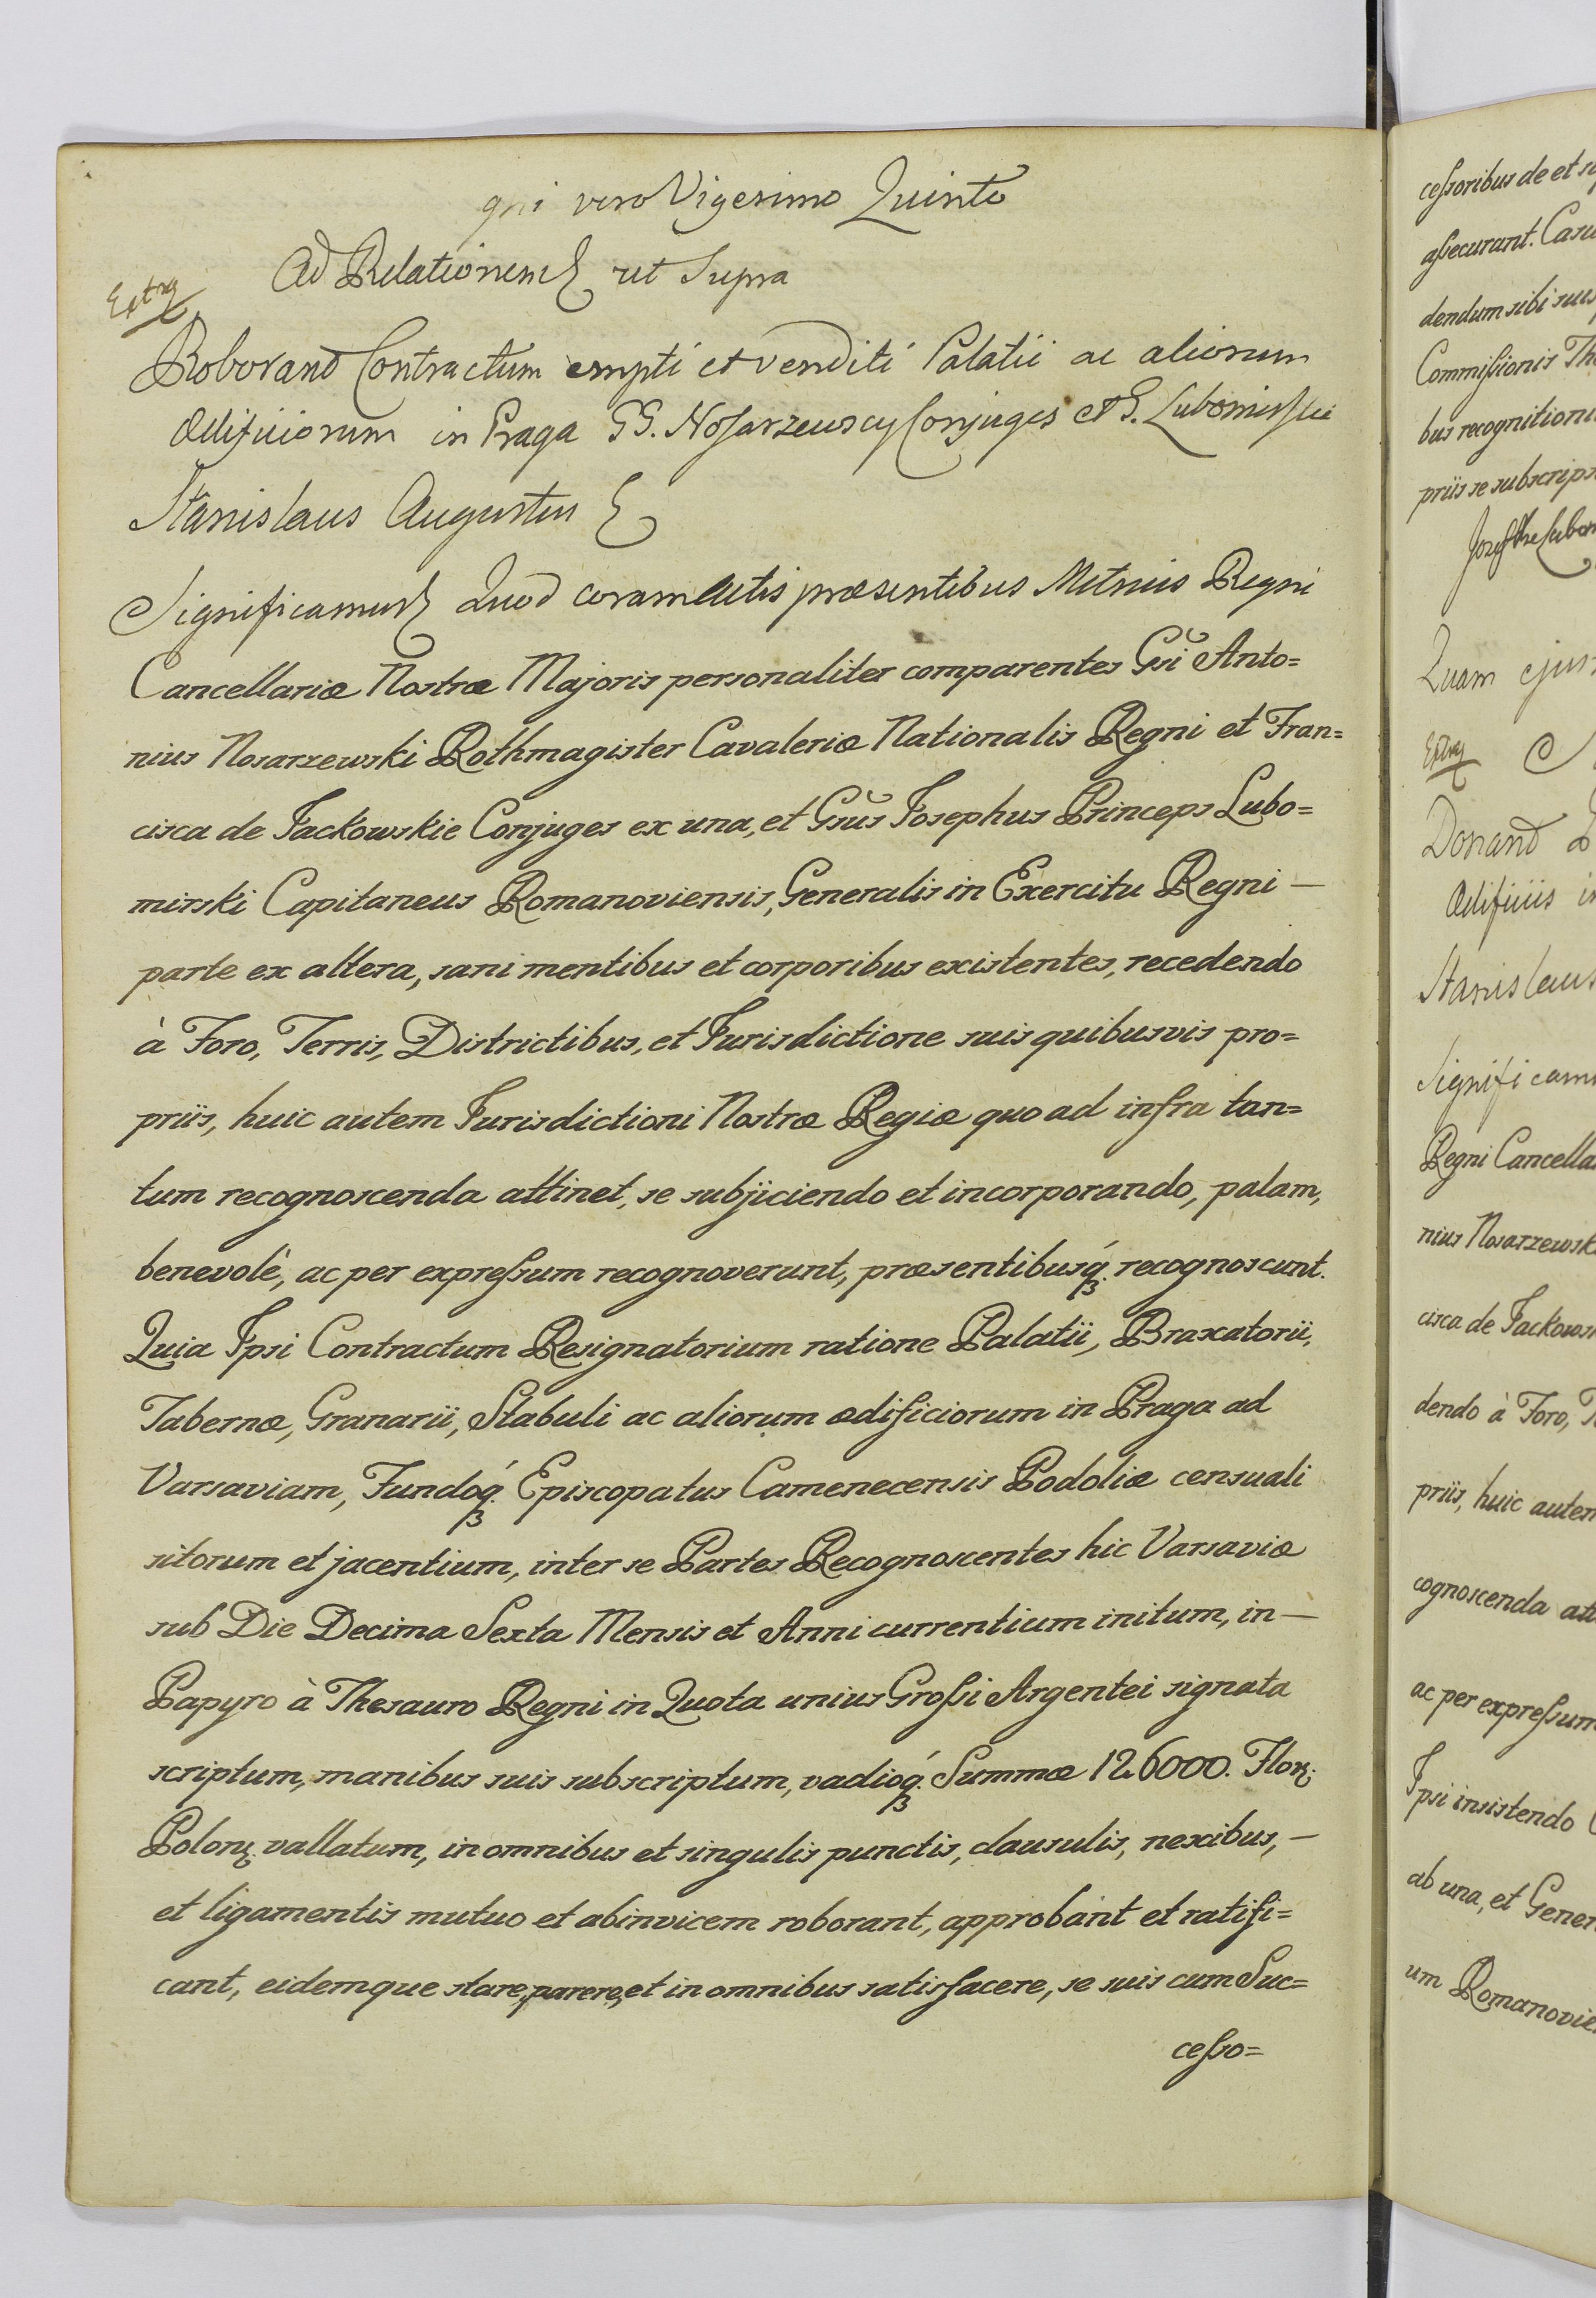 gni vero Vigesimo Quinto
Ad Relationem ut Supra
Extra
Roborand Contractum empti et venditi Palatii ac aliorum
Ædificiorum in Praga GG. Nosarzewscy Conjuges et G. Lubomirski
Stanislaus Augustus
Significamus Quod coram Actis præsentibus Metrices Regni
Cancellariæ Nostræ Majoris personaliter comparentes Gsi Anto=
nius Nosarzewski Rothmagister Cavaleriæ Nationalis Regni et Fran=
cisca de Jackowskie Conjuges ex una, et Gsus Josephus Princeps Lubo=
mirski Capitaneus Romanoviensis, Generalis in Exercitu Regni —
parte ex altera, sani mentibus et corporibus existentes, recedendo
à Foro, Terris, Districtibus, et Jurisdictione suis quibusvis pro=
priis, huic autem Jurisdictioni Nostræ Regiæ quo ad infra tan=
tum recognoscenda attinet, se subjiciendo et incorporando, palam,
benevolè, ac per expreſsum recognoverunt, præsentibusq́ꝫ recognoscunt.
Quia Ipsi Contractum Resignatorium ratione Palatii, Braxatorii,
Tabernæ, Granarii, Stabuli ac aliorum ædificiorum in Praga ad
Varsaviam, Fundoq́ꝫ Episcopatus Camenecensis Podoliæ censuali
sitorum et jacentium, inter se Partes Recognoscentes hic Varsaviæ
sub Die Decima Sexta Mensis et Anni currentium initum, in —
Papyro à Thesauro Regni in Quota unius Groſsi Argentei signata
scriptum, manibus suis subscriptum, vadioq́ꝫ Summæ 126000. Flor.
Polon. vallatum, in omnibus et singulis punctis, clausulis, nexibus, —
et ligamentis mutuo et abinvicem roborant, approbant et ratifi=
cant, eidemque stare, parere, et in omnibus satisfacere, se suis cum Suc=
ceſso=
ceſsoribus de et
aſsecurant. Casu
dendum sibi suis
Commiſsionis Th
bus recognitioni
priis se subscrips
Quam ejus
Extra
Donand
Ædificiis in
Stanislaus
Significam
Regni Cancella
nius Nosarzewsk
cisca de Jackows
dendo à Foro, T
priis, huic autem
cognoscenda att
ac per expreſsum
Ipsi insistendo
ab una, et Gener
um Romanovie